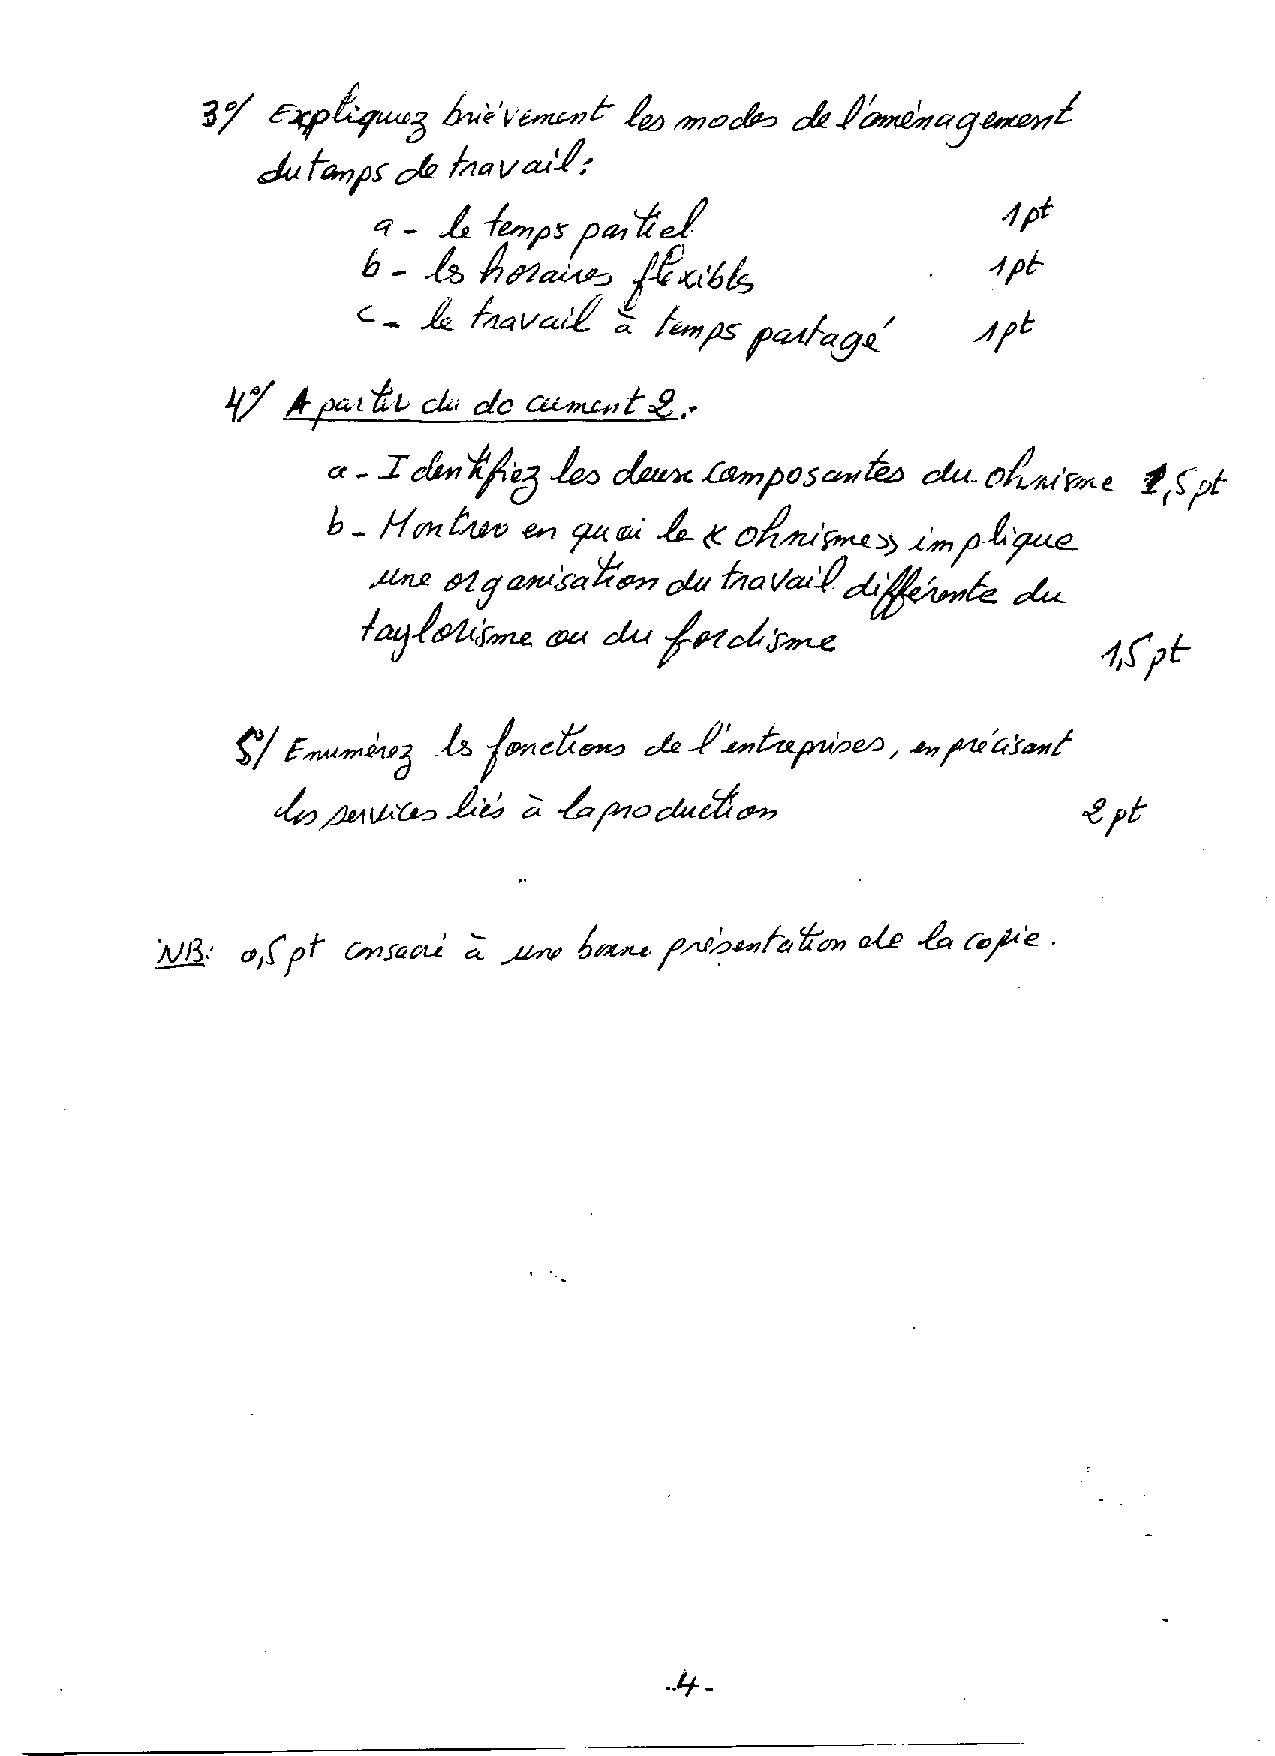 3°/ Expliquez brièvement les modes de l'aménagement
du temps de travail :
a - le temps partiel 1pt
b - les horaires flexibles 1pt
c - le travail à temps partagé 1pt
4°/ A partir du document 2.
a - Identifiez les deux composantes du ohnisme 1,5 pt
b - Montrer en quoi le « ohnisme » implique
une organisation du travail différente du
taylorisme ou du fordisme 1,5 pt
5°/ Enumèrez les fonctions de l'entreprises, en précisant
les services liés à la production 2 pt
NB: 0,5 pt consacré à une bonne présentation de la copie.
-4-